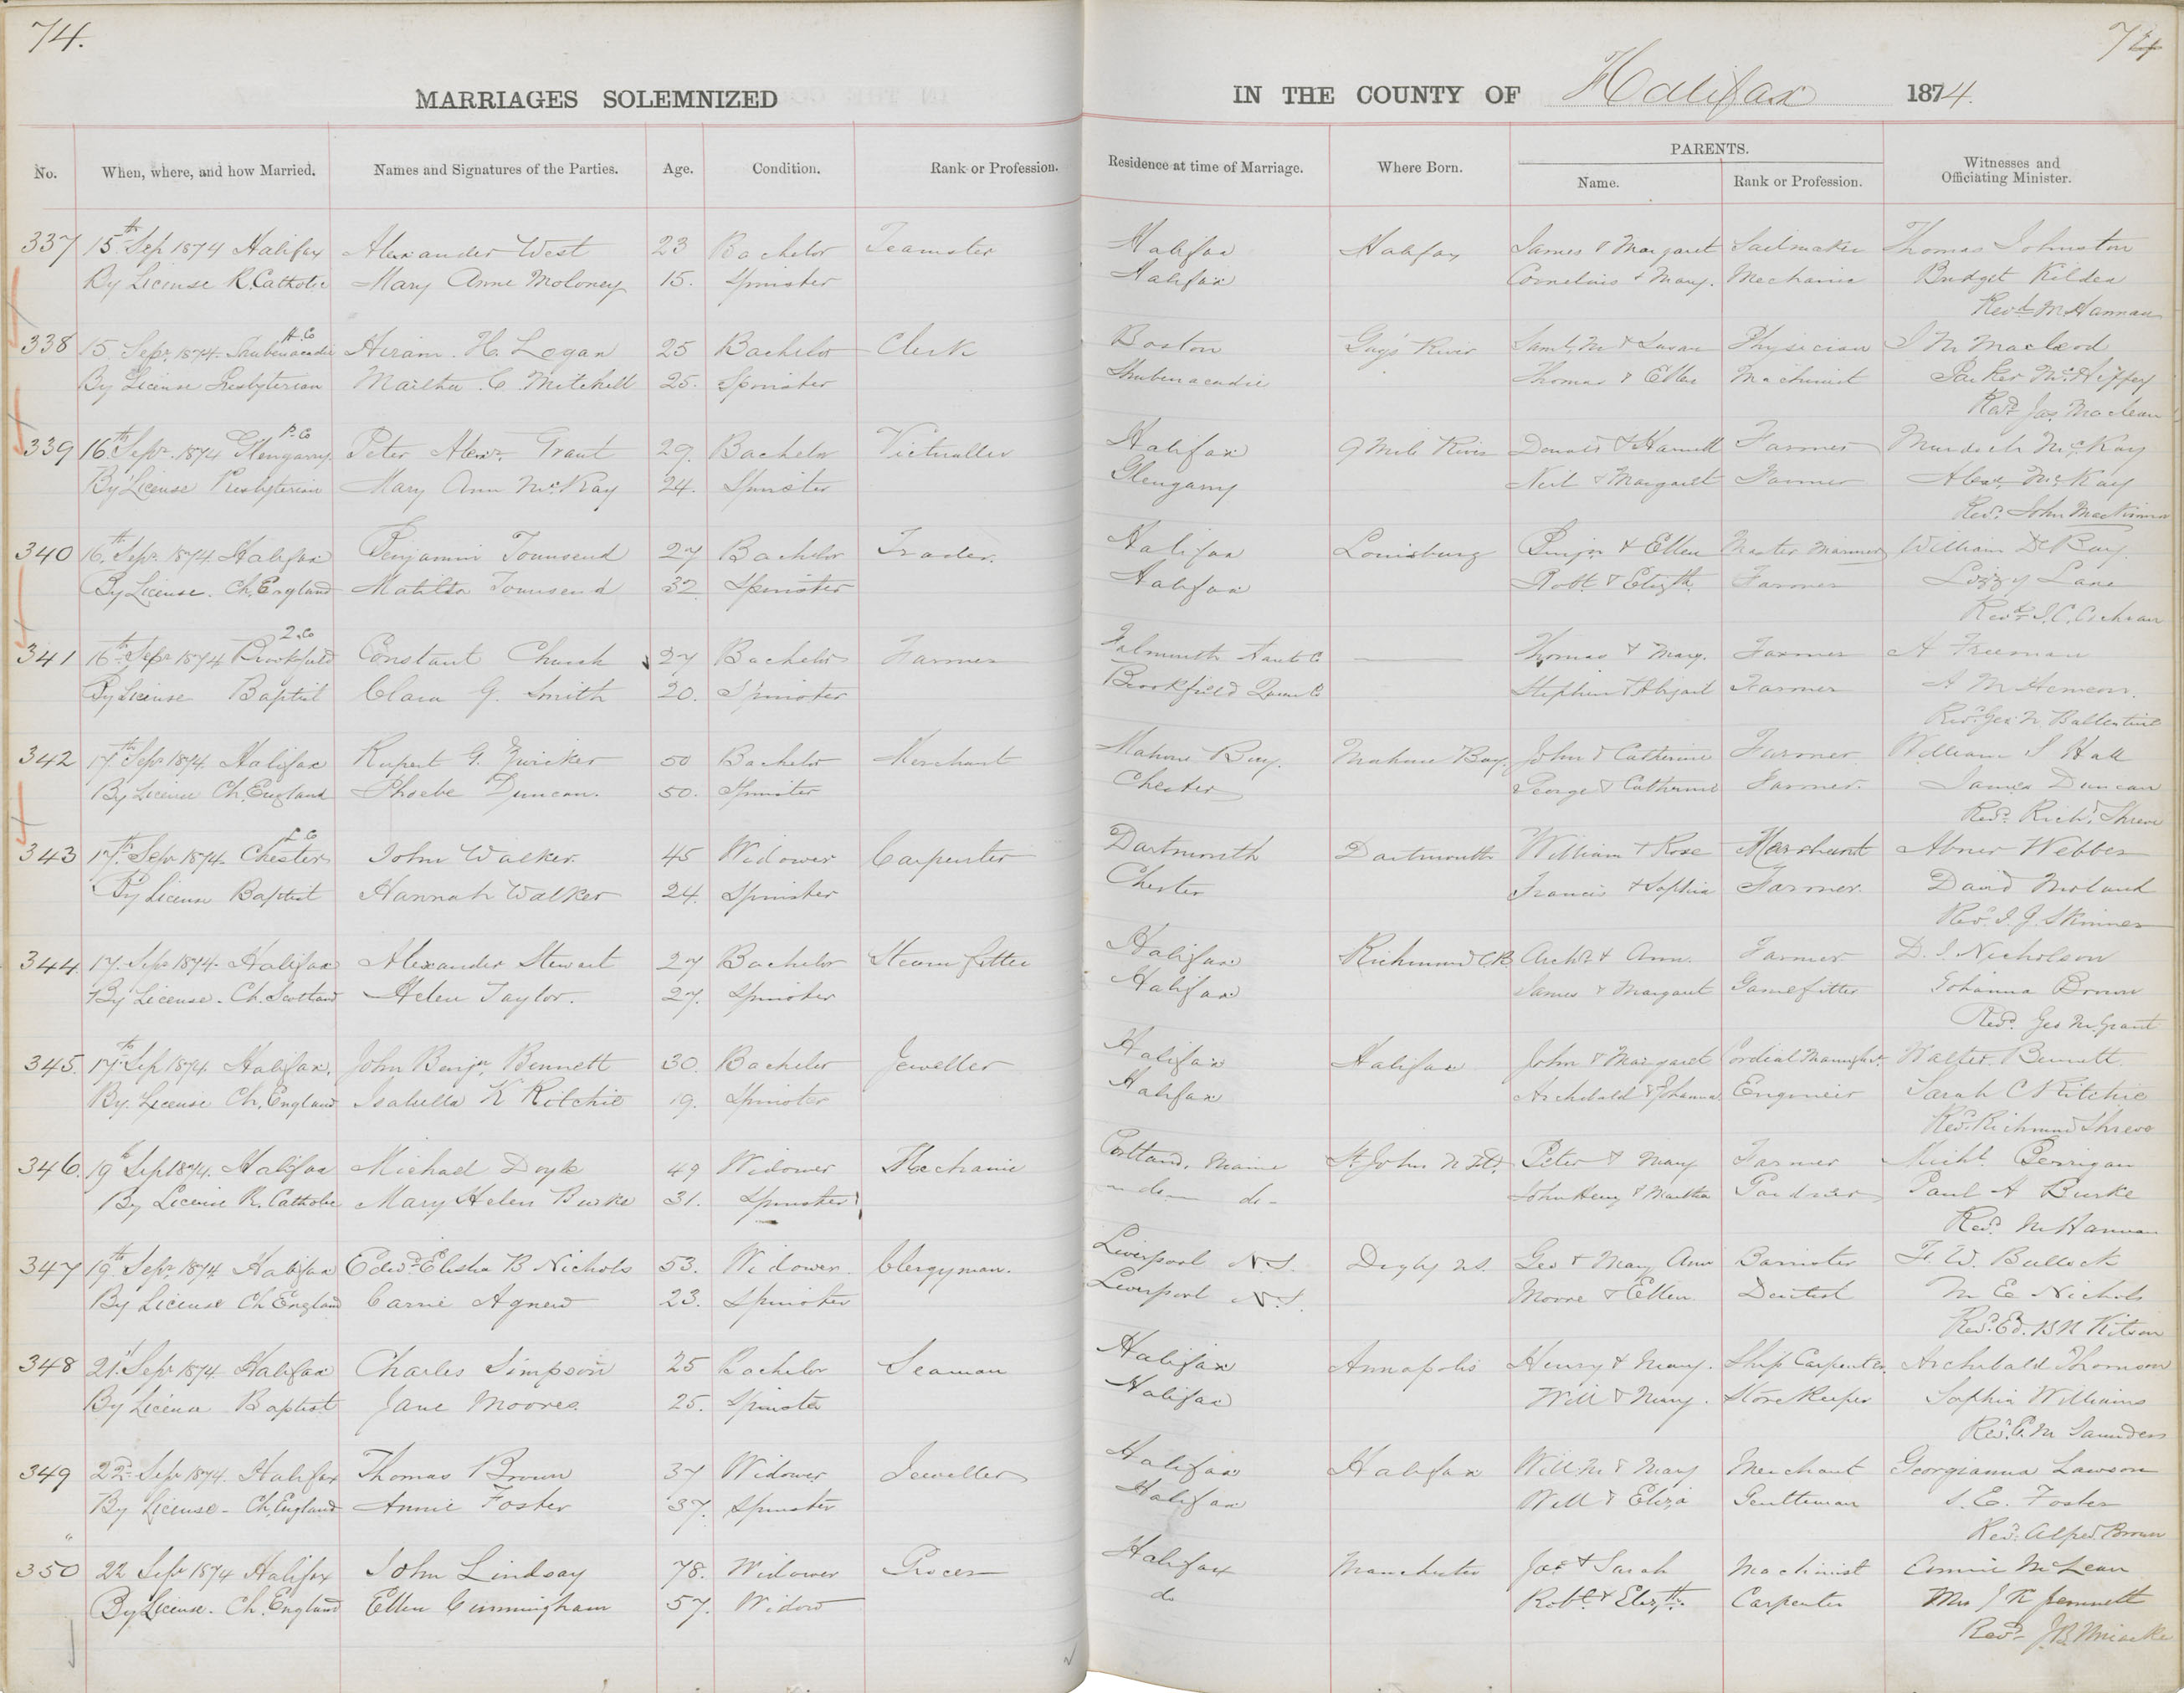 74.
74
MARRIAGES SOLEMNIZED
IN THE COUNTY OF Halifax 1874.
No. When, where, and how Married. Names and Signatures of the Parties. Age. Condition. Rank or Profession. Residence at time of Marriage. Where Born. PARENTS. Name. Rank or Profession. Witnesses and Officiating Minister.
337 15th Sep 1874 Halifax Alexander West 23 Bachelor Teamster Halifax Halifax James & Margaret Sailmaker Thomas Johnston
By License R. Catholic Mary Anne Moloney 15. Spinster Halifax Cornelius & Mary. Mechanic Bridget Kildea
Revd M Hannan
H. Co
338 15 Sepr. 1874. Shubenacadie Hiram H. Logan 25 Bachelor Clerk Boston Gays River Saml. M & Susan Physician J M Macleod
By License Presbyterian Martha C. Mitchell 25. Spinster Shubenacadie Thomas & Ellen Machinist Parker McHeffey
Revd Jas Maclean
P. Co
339 16th Sepr. 1874 Glengarry Peter Alexr. Grant 29. Bachelor Victualler Halifax 9 Mile River Donald & Hannah Farmer Murdoch McKay
By License Presbyterian Mary Ann McKay 24. Spinster Glengarry Neil & Margaret Farmer Alexr McKay
Revd. John MacKinnon
340 16th Sepr. 1874. Halifax Benjamin Townsend 27 Bachelor Trader. Halifax Louisburg Benjn & Ellen Master Mariner William D Bay.
By License. Ch. England Matilda Townsend 32 Spinster Halifax Robt. & Elizth. Farmer Lizzy Lane
Revd J. C. Cochran
2. Co
341 16th Sepr 1874 Brookfield Constant Church 27 Bachelor Farmer Falmouth Hants Co Thomas & Mary. Farmer A Freeman
By License Baptist Clara G. Smith 20. Spinster Brookfield Queens Co Stephen & Abigail Farmer
Revd. Geo N Ballentine
342 17th Sepr 1874. Halifax Rupert G. Zwicker 50 Bachelor Merchant Mahone Bay. Mahone Bay. John & Catherine Farmer William S Hall
By License Ch. England Phoebe Duncan. 50. Spinster Chester George & Catherine Farmer. James Duncan
Revd. Richd. Shreve
L. Co
343 17th Sepr 1874. Chester John Walker. 45 Widower Carpenter Dartmouth Dartmouth William & Rose Merchant Abner Webber
By License Baptist Hannah Walker 24. Spinster Chester Francis & Sophia Farmer. David
Revd. I. J. Skinner
344. 17. Sepr 1874. Halifax Alexander Stewart 27 Bachelor Steam fitter Halifax Richmond C.B. Archd. & Ann. Farmer D. J. Nicholson
By License. Ch. Scotland Helen Taylor. 27. Spinster Halifax James & Margaret Johanna Brown
Revd. Geo M Grant
345. 17th Sep 1874. Halifax. John Benjn. Bennett 30. Bachelor Jeweller Halifax Halifax John & Margaret Cordial Walter Bennett
By License Ch. England Isabella K Ritchie 19. Spinster Halifax Archibald & Johanna Engineer Sarah C Ritchie
Revd. Richmond Shreve
346. 19th Sep 1874. Halifax Michael Doyle 49 Widower Mechanic Portland, Maine St. John N Fd. Peter & Mary Farmer Michl. Berrigan
By License R. Catholic Mary Helen Burke 31. Spinster do do John Henry & Martha Gardner Paul A Burke
Revd. M Hannan
347 19th Sepr. 1874 Halifax Edwd. Elisha B Nichols 53. Widower. Clergyman. Liverpool N.S. Digby N.S. Geo & Mary Ann Barrister F. W. Bullock
By License Ch England Carrie Agnew 23. Spinster Liverpool N.S. Moore & Ellen Dentist M E Nichols
Revd. Ed. B N
348 21st Sepr 1874 Halifax Charles Simpson 25 Bachelor Seaman Halifax Annapolis Henry & Mary. Ship Carpenter. Archibald Thomson
By License Baptist Jane Moores. 25. Spinster Halifax Will & Mary. Store Keeper Sophia Williams
Revd. E. M Saunders
349 22nd Sepr 1874. Halifax Thomas Brown 37 Widower Jeweller Halifax Halifax Will. M & Mary Merchant Georgianna Lawson
By License - Ch. England Annie Foster 37. Spinster Halifax Will & Eliza Gentleman S. E. Foster
Revd. Alfred Brown
350 22 Sepr 1874 Halifax John Lindsay 78. Widower Grocer Halifax Manchester Jos & Sarah Machinist Annie McLean
By License. Ch. England Ellen Cunningham 57. Widow do Robt. & Elizth. Carpenter Mrs J R Jennett
Revd J B Uniacke